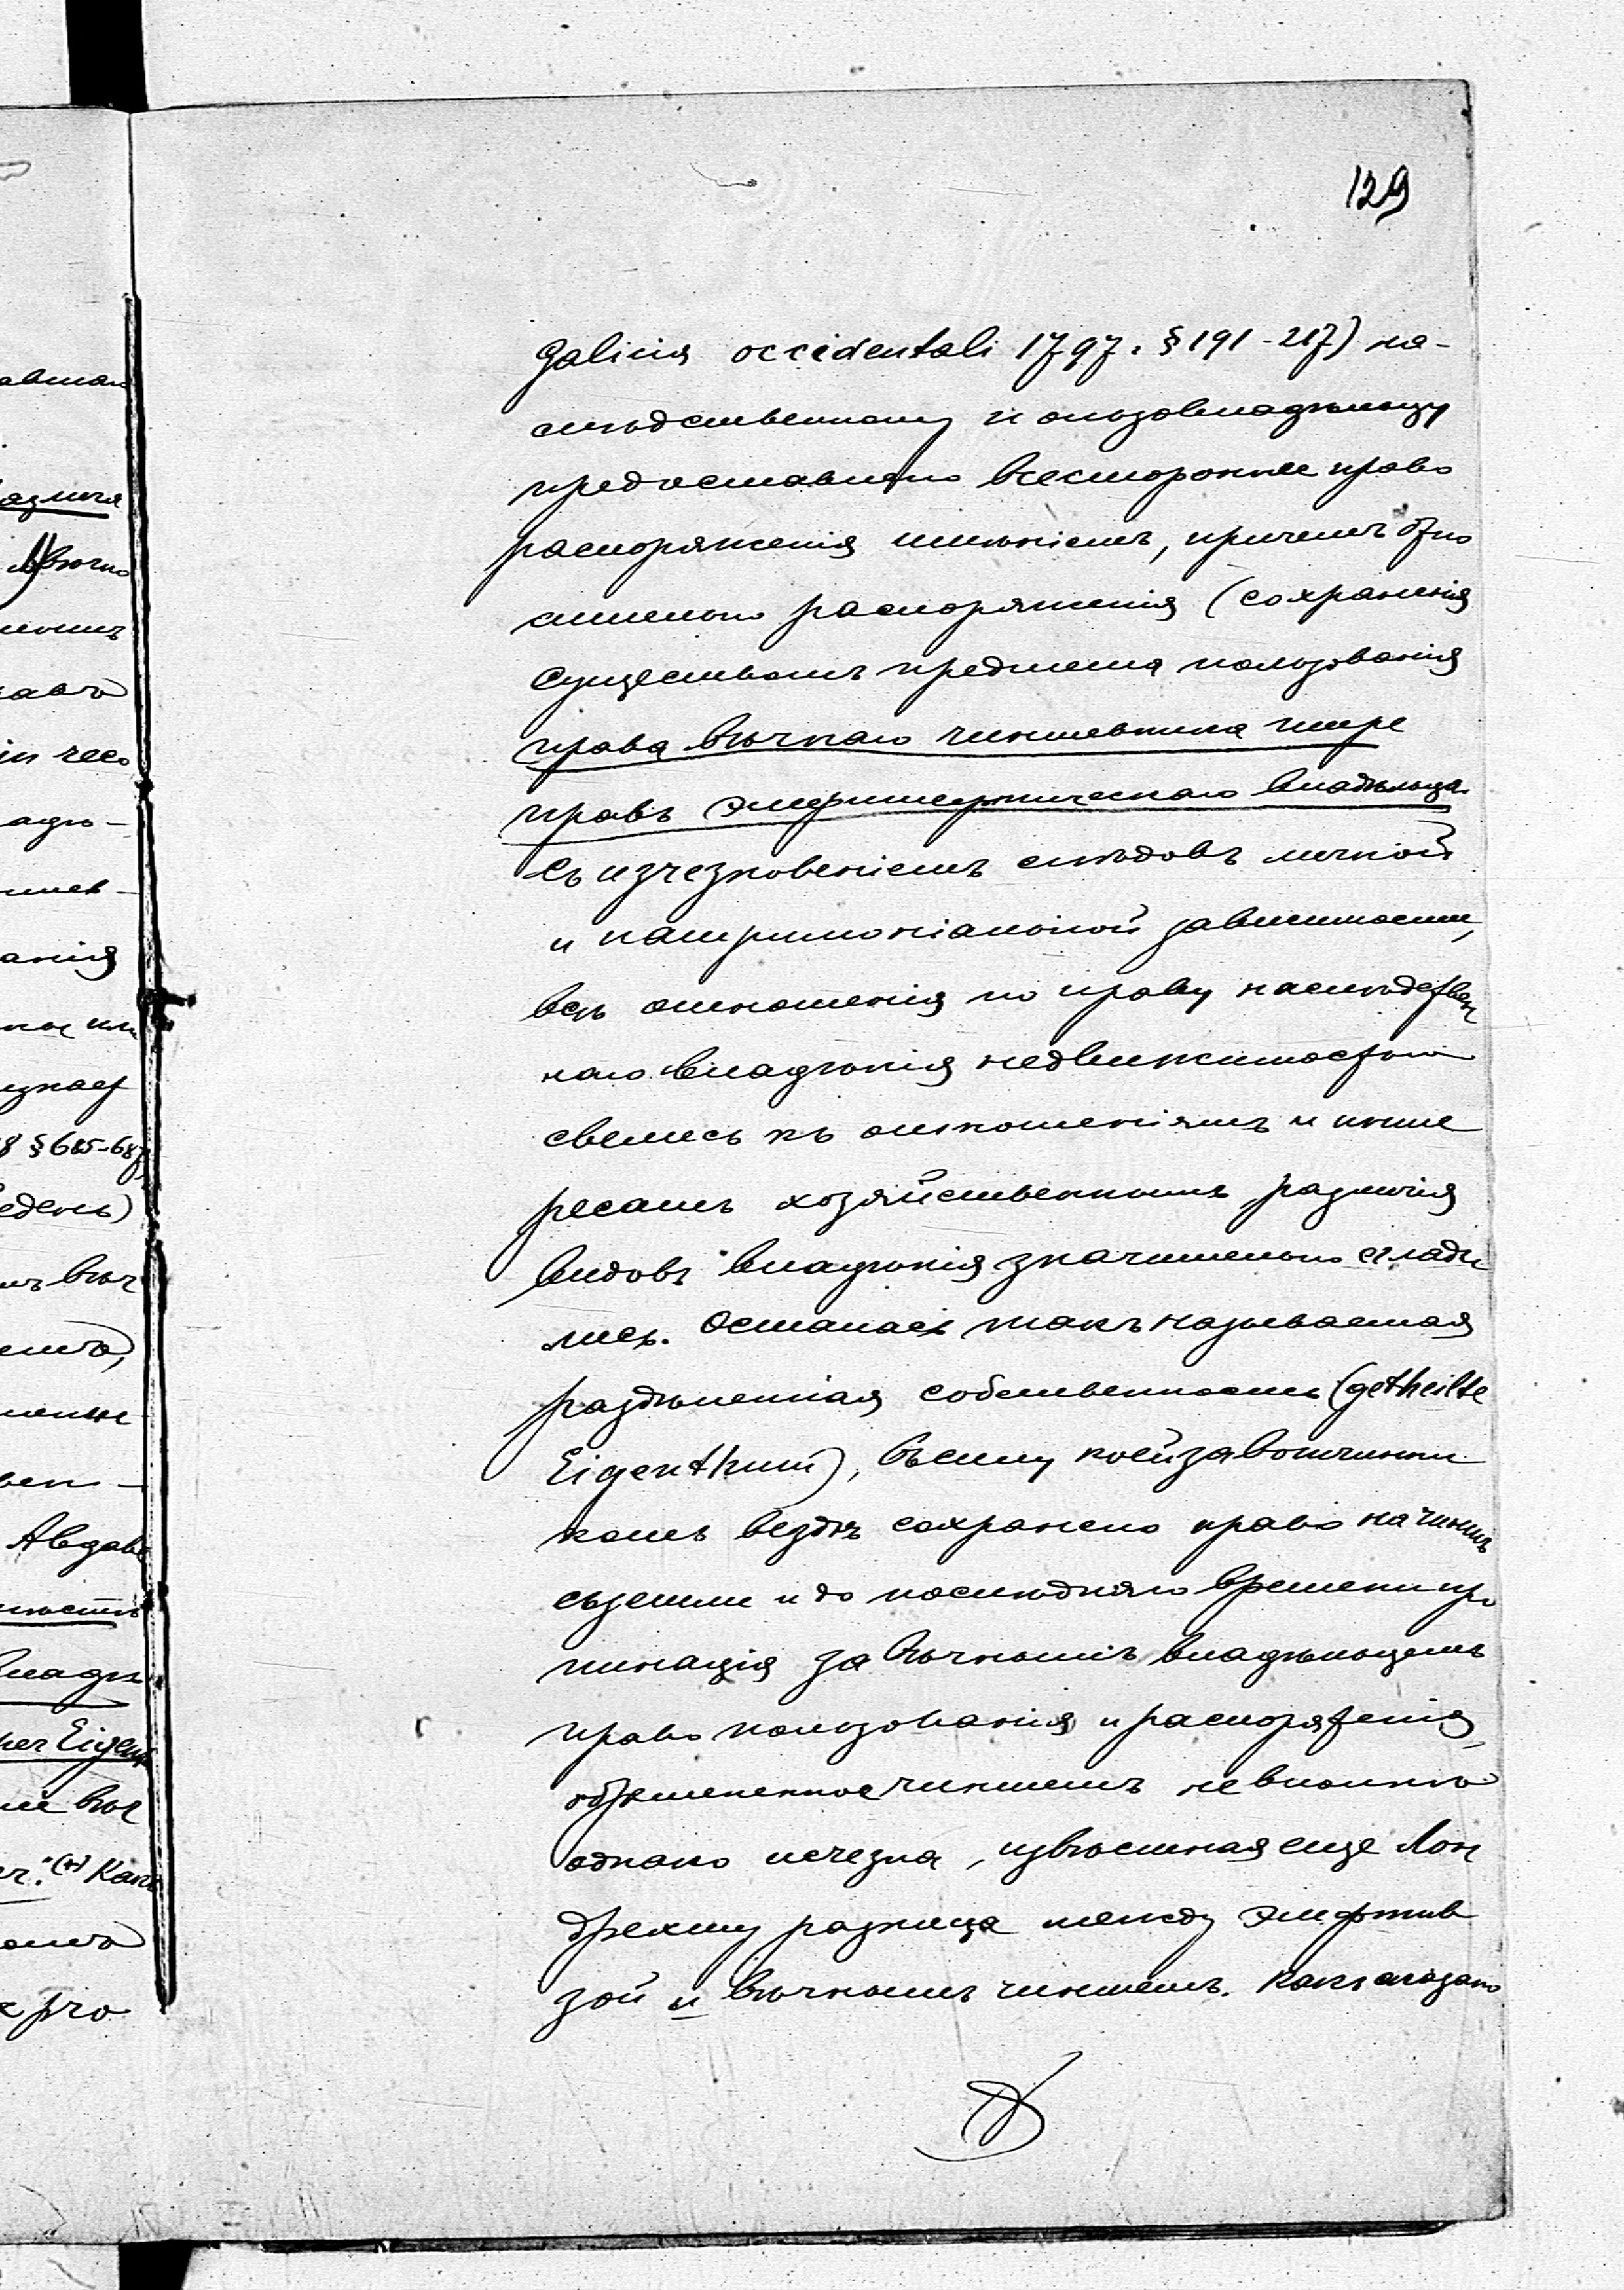 129
Galicia occidentali 1797. § 191-217) на-
слѣдственному и ользовладѣльцу
предоставлено всестороннее право
распоряженія имѣніемъ, причемъ отно
сительно распоряженія (сохраненія
существомъ предмета пользованія
права вѣчнаго чиншевика шире
правъ эмфитевтическаго владѣльца.
Съ изчезновеніемъ слѣдовъ личной
и патримоніальной зависимости,
всѣ отношенія по праву наслѣдствен
наго владѣнія недвижимостью
свелись къ отношеніямъ и инте
ресамъ хозяйственнымъ, различія
видовъ владѣнія значительно сглади
лись. Осталась такъ называемая
раздѣленная собственность (getheilte
Eigenthum), въ силу коей за вотчинни
комъ вездѣ сохранено право на чиншъ
съ земли и до послѣдняго времени про
пинація за вѣчнымъ владѣльцемъ
право пользованія и распоряженія,
обремененное чиншемъ не вполнѣ
однако исчезла, извѣстная еще Лон
дрехту разница между эмфтив
зой и вѣчнымъ чиншемъ. Какъ сказано
авт
азмѣ
вѣчно
авъ
in rec
адѣ-
анія
§ 685-687
вѣч
Авдав
владѣ
her Eigenth
Какъ
pro